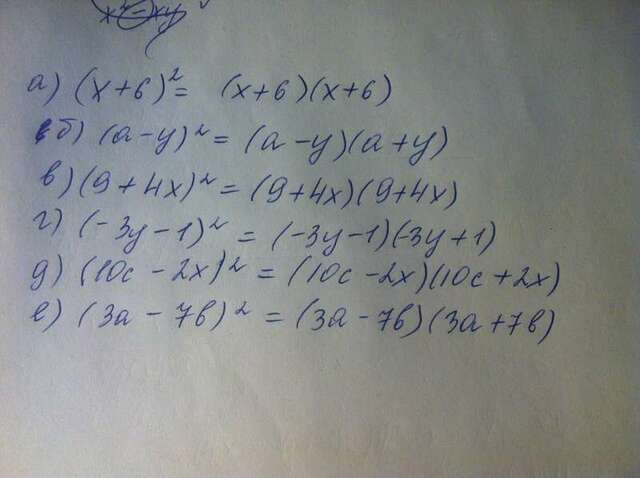 а) (x+6)² = (x+6)(x+6)
б) (a-y)² = (a-y)(a+y)
в) (9+4x)² = (9+4x)(9+4x)
г) (-3y-1)² = (-3y-1)(-3y+1)
д) (10c-2x)² = (10c-2x)(10c+2x)
е) (3a-7b)² = (3a-7b)(3a+7b)